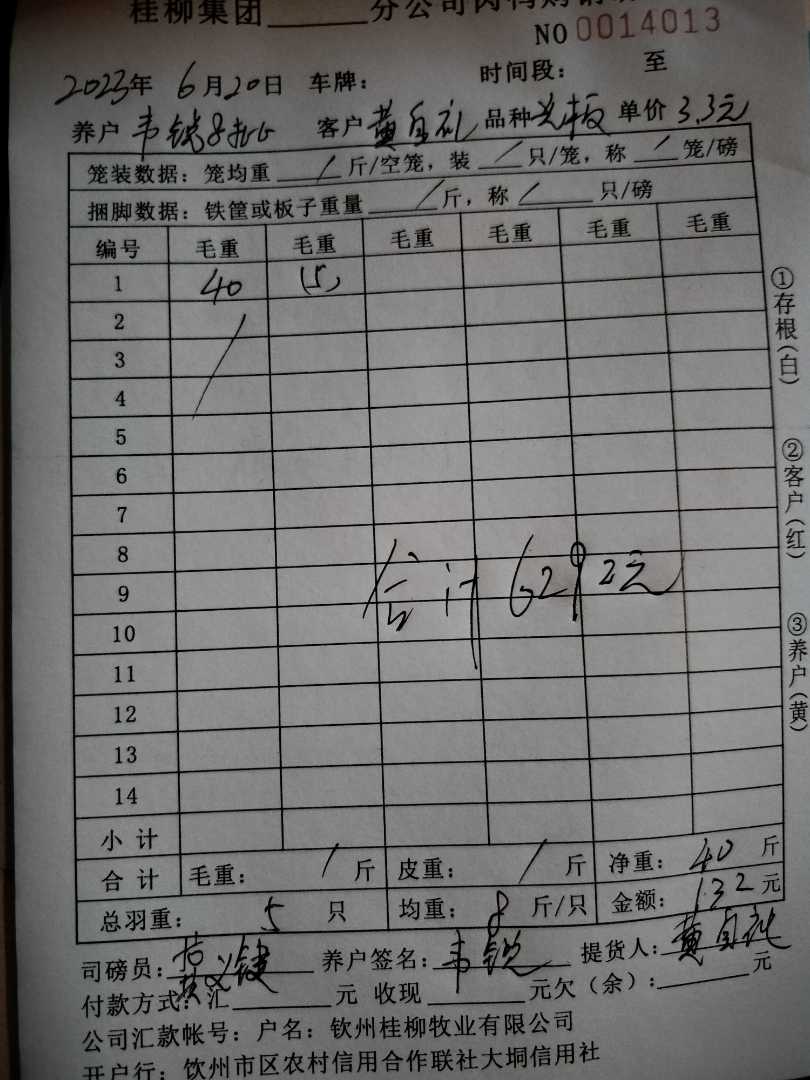 桂柳集团______分公司肉鸭购销
NO 0014013
2023年 6月20日 车牌： 时间段： 至
养户 韦锐 客户 黄自礼 品种 单价 3.3元
笼装数据：笼均重 / 斤/空笼，装 / 只/笼，称 / 笼/磅
捆脚数据：铁筐或板子重量 / 斤，称 / 只/磅
编号 毛重 毛重 毛重 毛重 毛重 毛重
1 40 (5)
2
3
4
5
6
7
8
9
10
11
12
13
14
合计 6292元
小计
合计 毛重： / 斤 皮重： / 斤 净重： 40 斤
总羽重： 5 只 均重： 8 斤/只 金额： 132 元
司磅员： 养户签名：韦锐 提货人：黄自礼
付款方式：汇______元 收现______元欠（余）：______元
公司汇款帐号：户名：钦州桂柳牧业有限公司
开户行：钦州市区农村信用合作联社大垌信用社
①存根（白）
②客户（红）
③养户（黄）